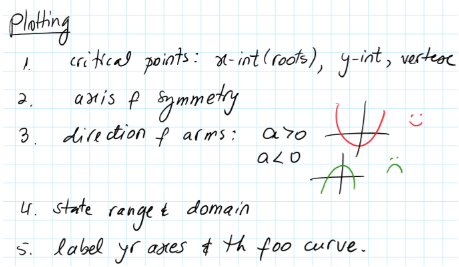 Plotting
1. critical points: x-int (roots), y-int, vertex
2. axis of symmetry
3. direction of arms: a>0
a<0
4. state range & domain
5. label yr axes & th foo curve.